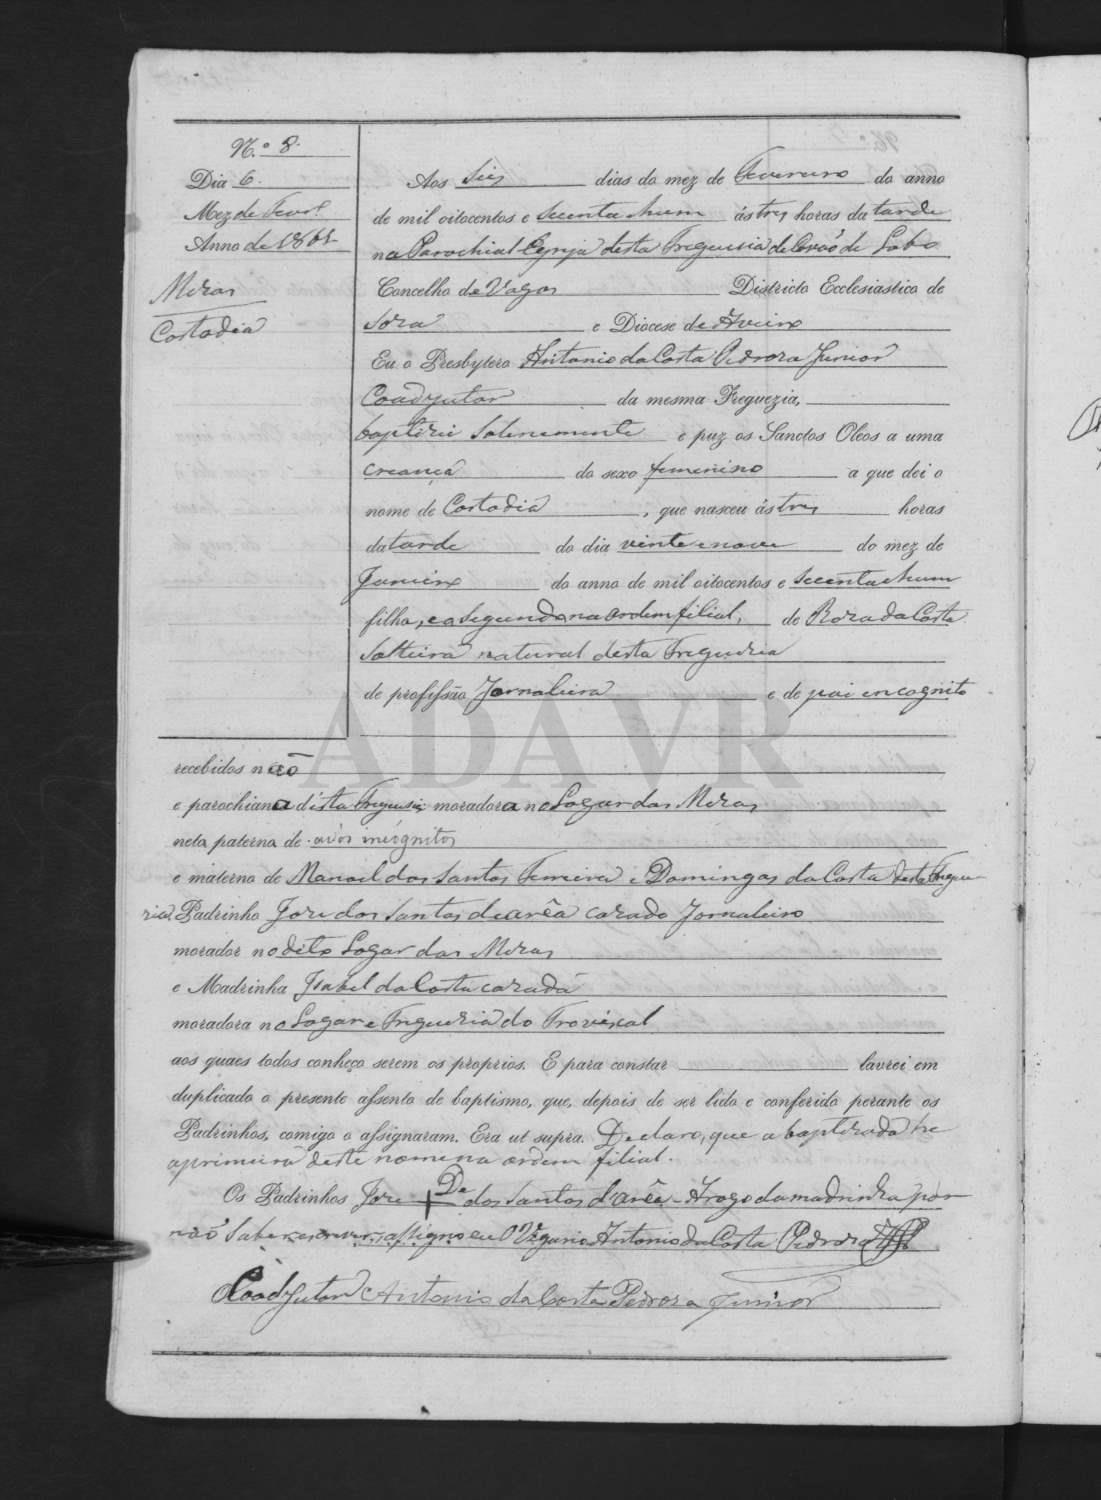 N.º 8.
Dia 6.
Mez de Fevr.º
Anno de 1861
Mezas
Costodia
Aos Seis dias do mez de Fevereiro do anno
de mil oitocentos e secenta e hum ás tres horas da tarde
na Parochial Egreja desta Freguesia de Covaõ de Lobo
Concelho de Vagos Districto Ecclesiastico de
Soza e Diocese de Aveiro
Eu o Presbytero Antonio da Costa Pedroza Junior
Coadjutor da mesma Freguezia,
baptizei Solenemente e puz os Sanctos Oleos a uma
creança do sexo femenino a que dei o
nome de Costodia, que nasceu ás tres horas
da tarde do dia vinte e nove do mez de
Janeiro do anno de mil oitocentos e secenta e hum
filha, e a segunda na ordem filial, de Roza da Costa
Solteira natural desta Freguezia
de profissão Jornaleira e de pai incognito
recebidos naõ
e parochiana désta Freguesia moradora no Logar das Mezas
neta paterna de avós incógnitos
e materna de Manoel dos Santos Ferreira e Domingas da Costa desta Fregue-
zia. Padrinho Joze dos Santos de arêa cazado Jornaleiro
morador no dito Logar das Mezas
e Madrinha Isabel da Costa cazada
moradora no Logar e Freguezia do Troviscal
aos quaes todos conheço serem os proprios. E para constar lavrei em
duplicado o presente assento de baptismo, que, depois de ser lido e conferido perante os
Padrinhos, comigo o assignaram. Era ut supra. Declaro, que a baptizada he
a primeira deste nome na ordem filial.
Os Padrinhos Joze De dos Santos d'arêa - A rogo da madrinha por
naõ Saber escrever, assigno eu O Vigario Antonio da Costa Pedroza
O Coadjutor Antonio da Costa Pedroza Junior
ADAVR